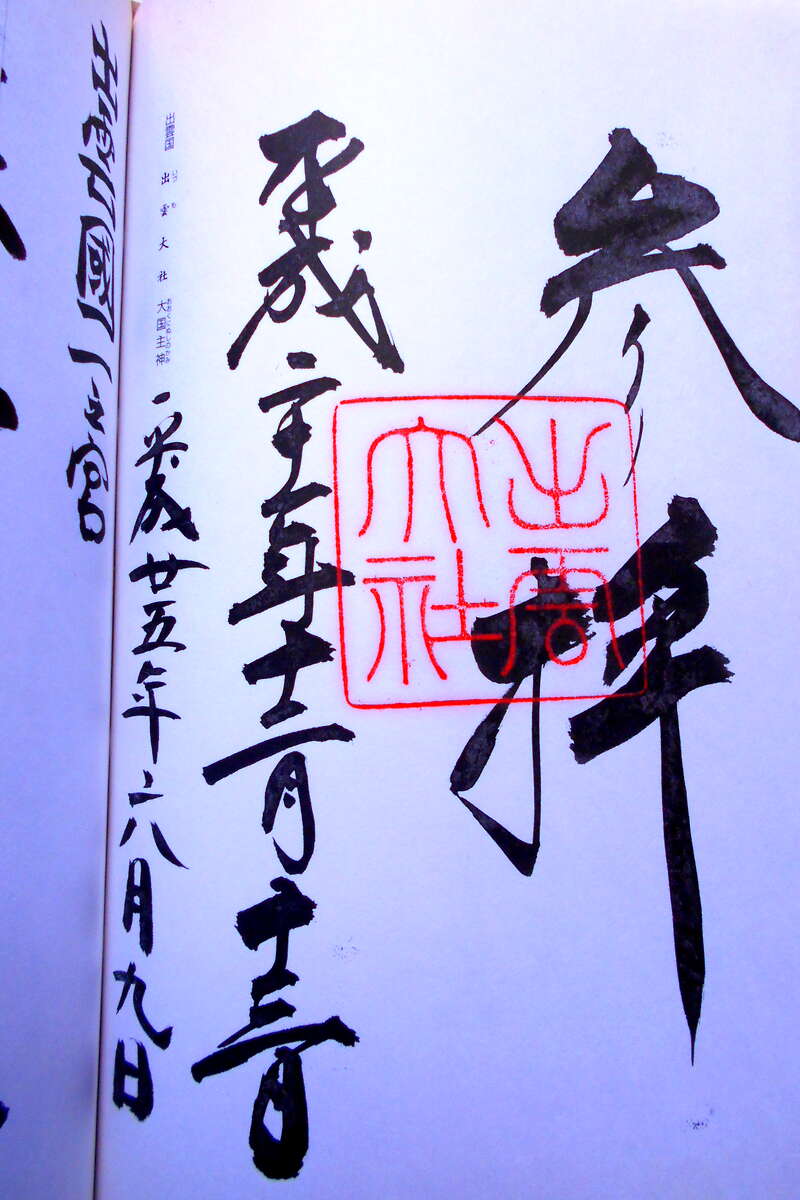 参拝
出雲
大社
平成二十一年十二月十三日
出雲国 出雲大社 大国主神
平成廿五年六月九日
出雲國一之宮